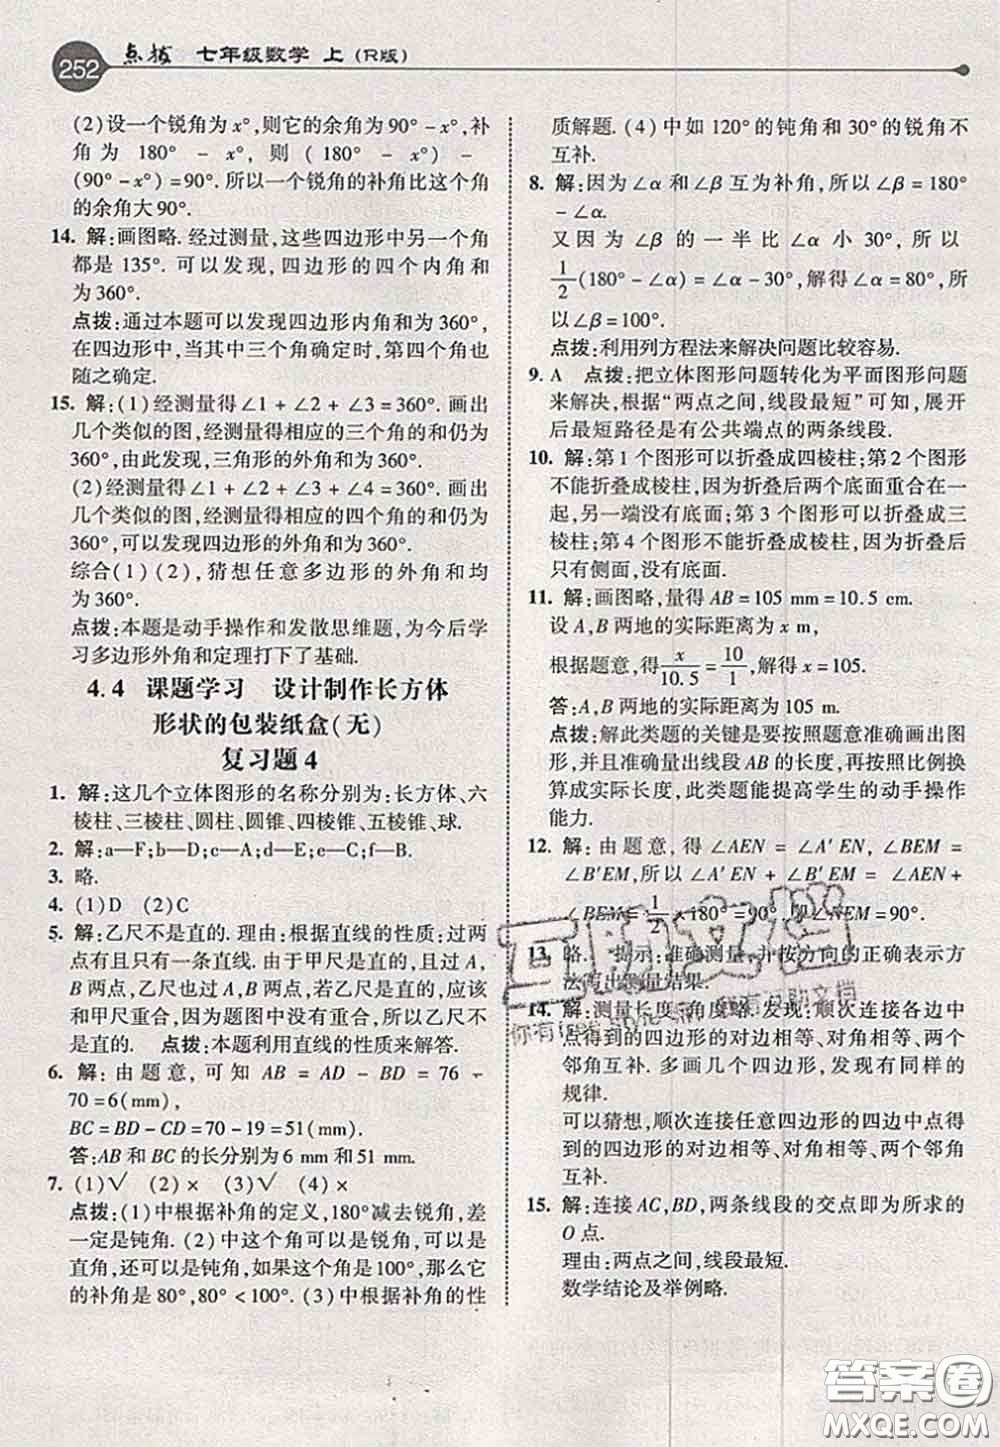 252 点拨 七年级数学 上(R版)
(2)设一个锐角为x°,则它的余角为90°-x°,补
角为 180° - x°,则 (180° - x°) -
(90°-x°)=90°. 所以一个锐角的补角比这个角
的余角大90°.
14. 解:画图略. 经过测量,这些四边形中另一个角
都是 135°. 可以发现,四边形的四个内角和
为360°.
点拨:通过本题可以发现四边形内角和为360°,
在四边形中,当其中三个角确定时,第四个角也
随之确定.
15. 解:(1)经测量得∠1+∠2+∠3=360°. 画出
几个类似的图,经测量得相应的三个角的和仍为
360°,由此发现,三角形的外角和为360°.
(2)经测量得∠1+∠2+∠3+∠4=360°. 画出
几个类似的图,经测量得相应的四个角的和仍为
360°,可以发现四边形的外角和为360°.
综合(1)(2),猜想任意多边形的外角和均
为360°.
点拨:本题是动手操作和发散思维题,为今后学
习多边形外角和定理打下了基础.
4.4 课题学习 设计制作长方体
形状的包装纸盒(无)
复习题4
1. 解:这几个立体图形的名称分别为:长方体、六
棱柱、三棱柱、圆柱、圆锥、四棱锥、五棱锥、球.
2. 解:a—F;b—D;c—A;d—E;e—C;f—B.
3. 略.
4. (1)D (2)C
5. 解:乙尺不是直的. 理由:根据直线的性质:过两
点有且只有一条直线. 由于甲尺是直的,过A,
B两点,乙尺也过A,B两点,若乙尺是直的,应该
和甲尺重合,因为题图中没有重合,所以乙尺不
是直的. 点拨:本题利用直线的性质来解答.
6. 解:由题意,可知 AB = AD - BD = 76 -
70=6(mm),
BC=BD-CD=70-19=51(mm).
答:AB和BC的长分别为6 mm和51 mm.
7. (1)√ (2)× (3)√ (4)×
点拨:(1)中根据补角的定义,180°减去锐角,差
一定是钝角. (2)中这个角可以是锐角,可以是
直角,还可以是钝角,如果这个角是100°,那么它
的补角是80°,80°<100°. (3)中根据补角的性
质解题. (4)中如120°的钝角和30°的锐角不
互补.
8. 解:因为∠α和∠β互为补角,所以∠β=180°
-∠α.
又因为∠β的一半比∠α小30°,所以
1/2(180°-∠α)=∠α-30°,解得∠α=80°,所
以∠β=100°.
点拨:利用列方程法来解决问题比较容易.
9. A 点拨:把立体图形问题转化为平面图形问题
来解决,根据“两点之间,线段最短”可知,展开
后最短路径是有公共端点的两条线段.
10. 解:第1个图形可以折叠成四棱柱;第2个图形
不能折叠成棱柱,因为折叠后两个底面重合在一
起,另一端没有底面;第3个图形可以折叠成三
棱柱;第4个图形不能折叠成棱柱,因为折叠后
只有侧面,没有底面.
11. 解:画图略,量得AB=105 mm=10.5 cm.
设A,B两地的实际距离为x m,
根据题意,得x/10.5=10/1,解得x=105.
答:A,B两地的实际距离为105 m.
点拨:解此类题的关键是要按照题意准确画出图
形,并且准确量出线段AB的长度,再按照比例换
算成实际长度,此类题能提高学生的动手操作
能力.
12. 解:由题意,得 ∠AEN = ∠A′EN,∠BEM =
∠B′EM,所以∠A′EN + ∠B′EM = ∠AEN +
∠BEM=1/2×180°=90°,即∠NEM=90°.
13. 略. 提示:准确测量,并按方向的正确表示方
法写出测量结果.
14. 解:测量长度、角度略. 发现:顺次连接各边中
点得到的四边形的对边相等、对角相等、两个
邻角互补. 多画几个四边形,发现有同样的
规律.
可以猜想,顺次连接任意四边形的四边中点得
到的四边形的对边相等、对角相等,两个邻角
互补.
15. 解:连接AC,BD,两条线段的交点即为所求的
O点.
理由:两点之间,线段最短.
数学结论及举例略.
答案圈
MXQE.COM